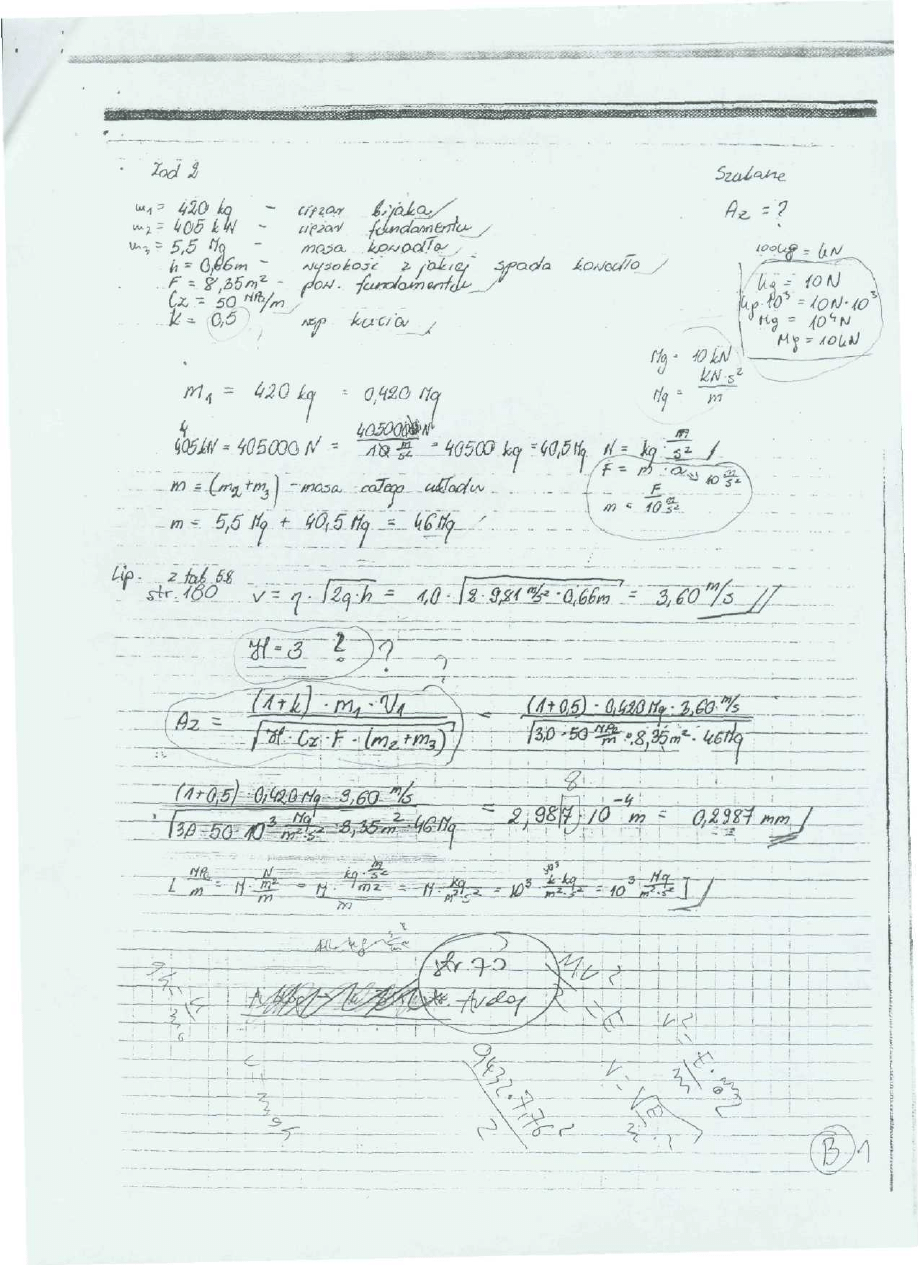 Zad 2
Szukane
m₁ = 420 kg - ciężar bijaka
Az = ?
m₂ = 405 kN - ciężar fundamentu
m₃ = 5,5 Mg - masa kowadła
100kg = kN
h = 0,66m - wysokość z jakiej spada kowadło
kg = 10N
F = 8,35m² - pow. fundamentu
kg·10³ = 10N·10³
Cz = 50 MPa/m
Mg = 10⁴N
k = 0,5 wsp kucia
Mg = 10kN
Mg = 10kN
Mg = kN·s²/m
m₁ = 420 kg = 0,420 Mg
405kN = 405000 N = 405000 N / 10 m/s² = 40500 kg = 40,5 Mg N = kg m/s²
F = m · a → 10 m/s²
m = (m₂+m₃) - masa całego układu
m = F / 10 m/s²
m = 5,5 Mg + 40,5 Mg = 46 Mg
Lip. z tab 5.8
str. 180 v = η · √2g·h = 1,0 · √8·9,81 m/s²·0,66m = 3,60 m/s
= 3 ? ?
Az = (1+k) · m₁ · V₁ / √ · Cz · F · (m₂+m₃) = (1+0,5) · 0,420 Mg · 3,60 m/s / √3,0 · 50 MPa/m · 8,35m² · 46Mg
(1+0,5) · 0,420 Mg · 3,60 m/s / √3,0 · 50 · 10³ Mg/m²·s² · 8,35m² · 46Mg = 2,987 · 10⁻⁴ m = 0,2987 mm
8
[ MPa/m = M · N/m² / m = M · kg · m/s² / m² / m = M · kg/m²·s² = 10³ k·kg/m²·s² = 10³ Mg/m²·s² ]
9432·7,76² / 2
B 1